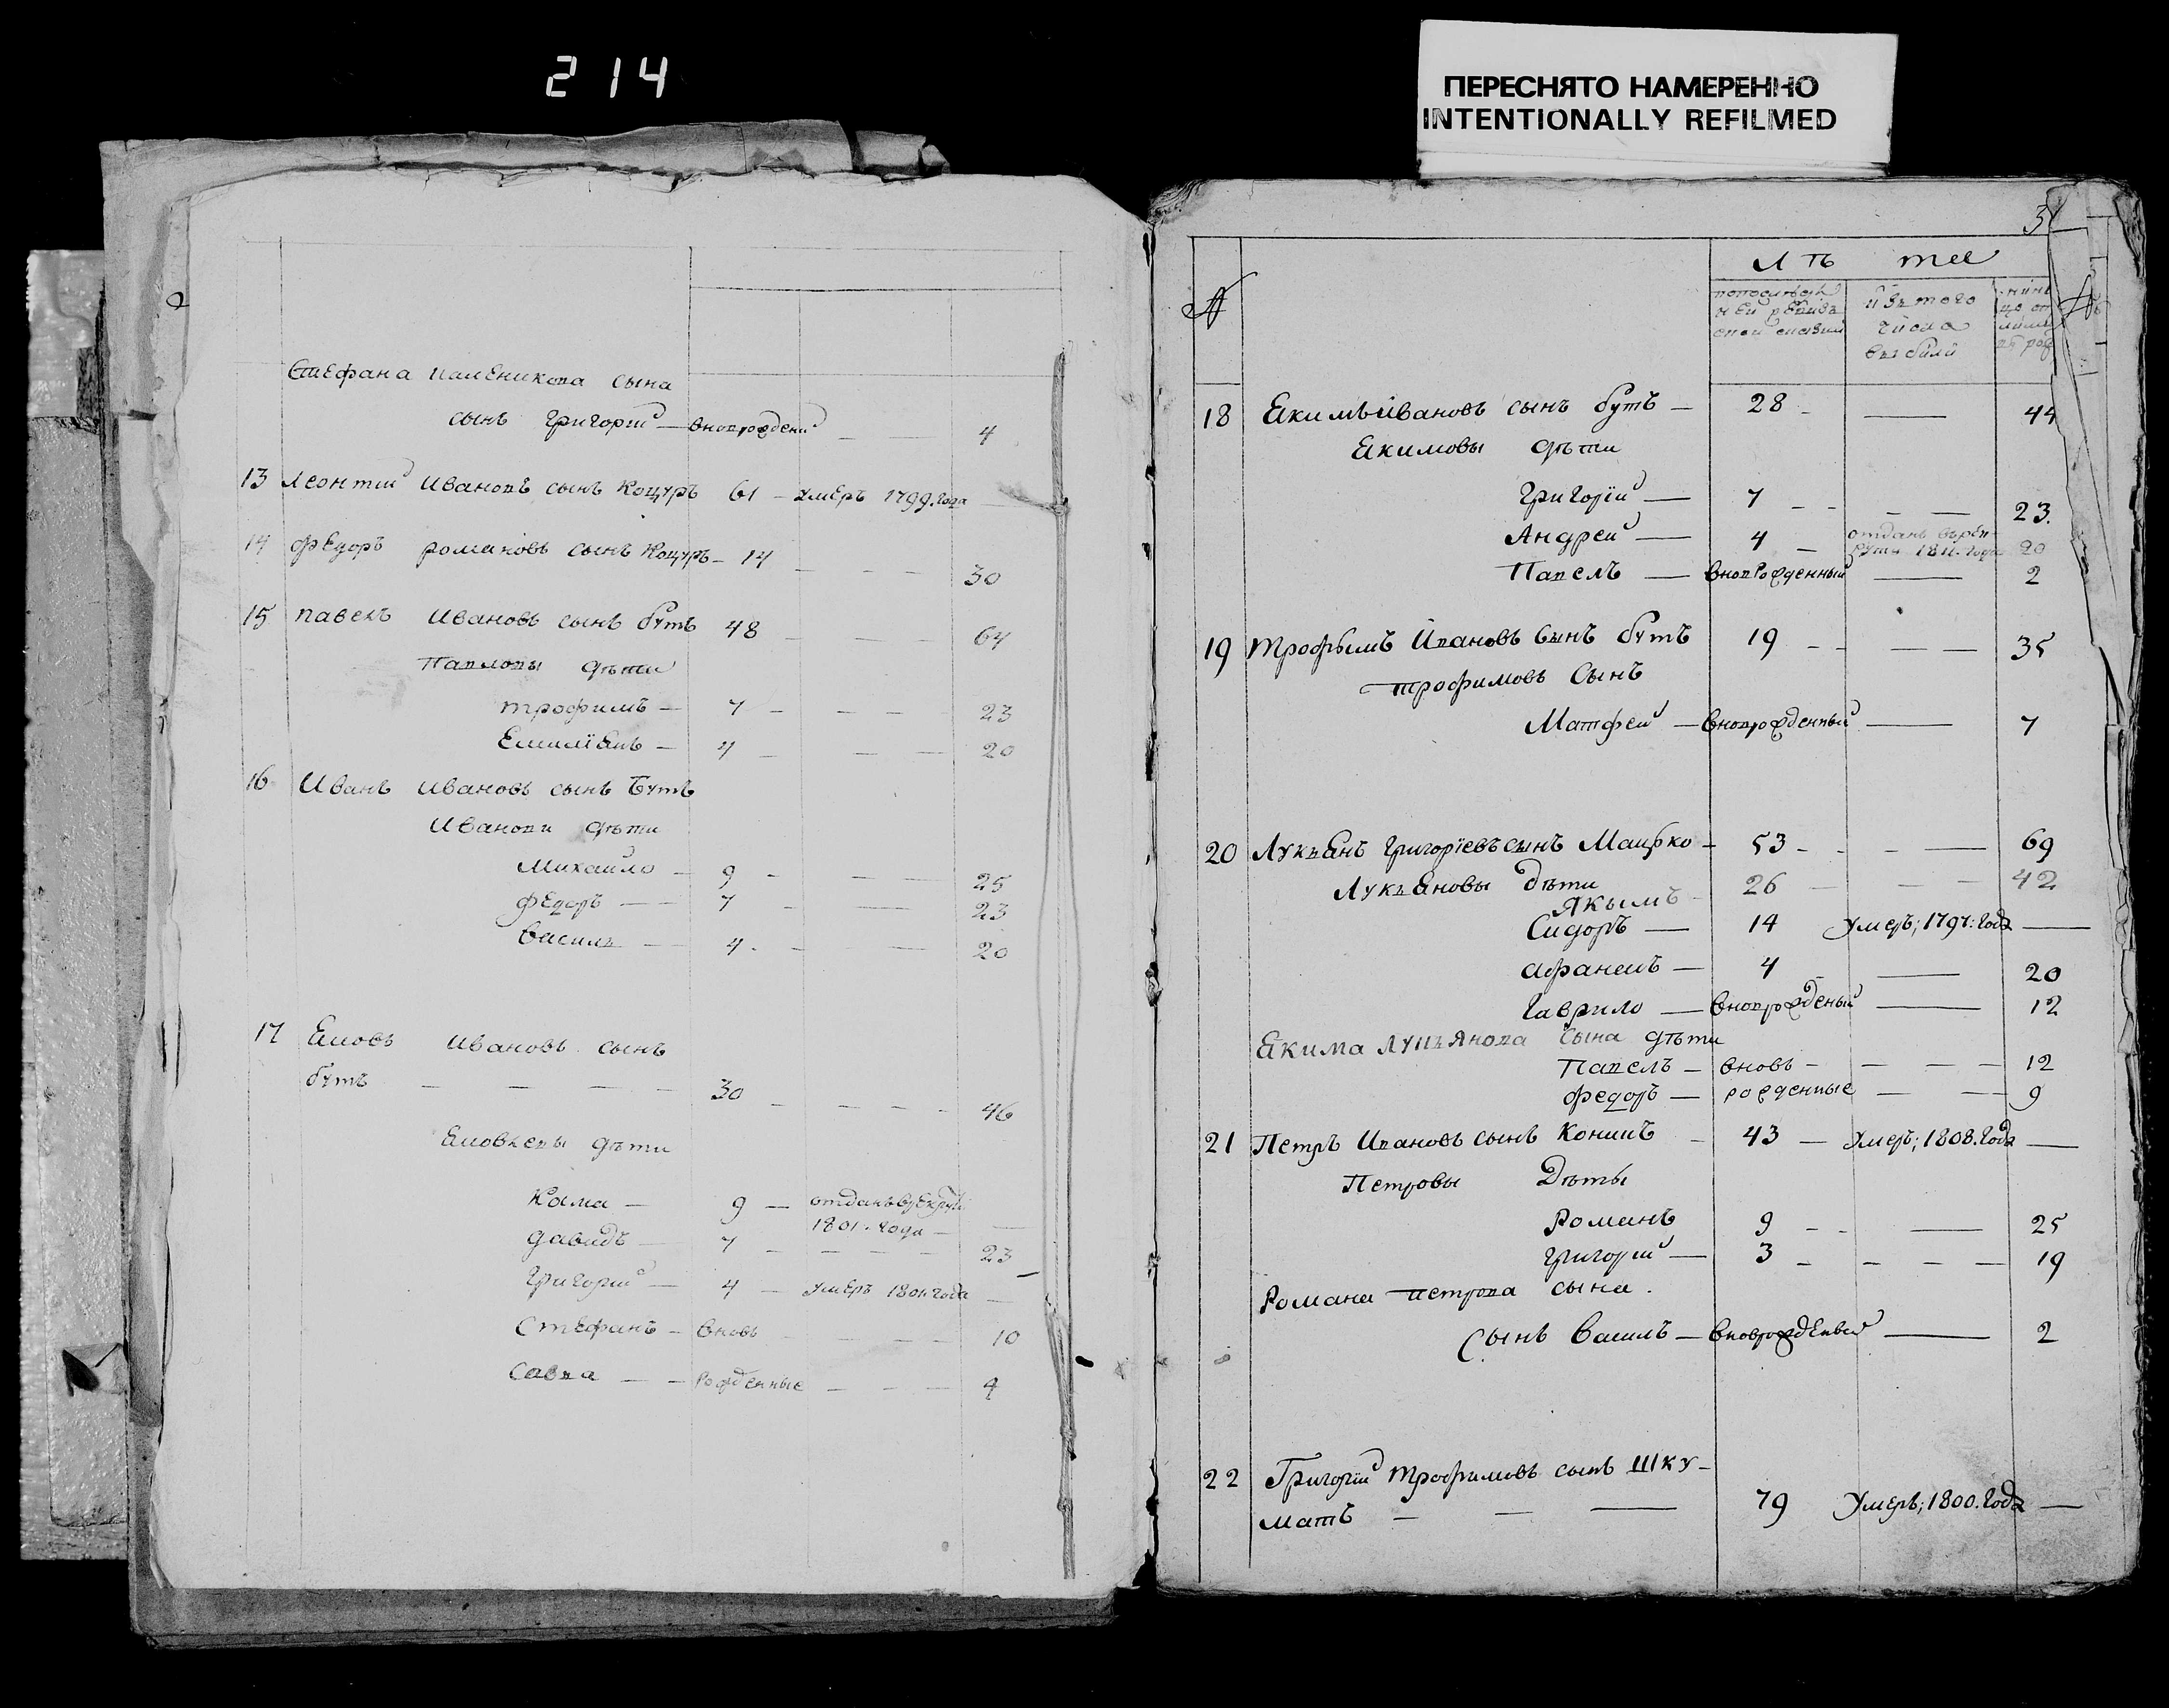 214
ПЕРЕСНЯТО НАМЕРЕННО
INTENTIONALLY REFILMED
Стефана сына
сынъ Григорій — вноврожденій — — 4
13 Леонтій Ивановъ сынъ Коцуръ 61 — умеръ 1799. года —
14 Федоръ Романовъ сынъ Коцуръ — 14 — — — 30
15 Павелъ Ивановъ сынъ Бутъ 48 — — — 64
Павловы дѣти
Трофимъ — 7 — — — 23
Емиліянъ — 4 — — — 20
16 Иванъ Ивановъ сынъ Бутъ
Иванови дѣти
Михайло — 9 — — — 25
Федоръ — — 7 — — — 23
Василъ — 4 — — 20
17 Ивановъ сынъ
Бутъ — — — — 30 — — — — 46
дѣти
9 — отданъ в рекруты
1801. года —
Давидъ — 7 — — — — 23
Григорій — 4 — умеръ 1801. года —
Стефанъ — вновь — — — 10
Савва — — рожденные — — — 4
3
№
Лѣ тее
по последней ревизской сказки
изъ того
числа
выбыли
18 Екимъ Ивановъ сынъ Бутъ — 28 — — 44
Екимовы дѣти
Григорій — 7 — — — — 23.
Андрей — 4 — отданъ въ рекруты 1811. года 20
Павелъ — вноврожденный — 2
19 Трофымъ Ивановъ сынъ Бутъ 19 — — — — 35
Трофимовъ сынъ
Матфей — вноврожденный — 7
20 Лукъянъ Григорїевъ сынъ — 53 — — — — 69
Лукъяновы дѣти
Якымъ — 26 — — — 42
Сидоръ — 14 умеръ; 1797: года —
Афанемъ — 4 — — 20
Гаврило — вноврожденый — 12
Екима Лукъянова сына дѣти
Павелъ — вновь — — — — 12
Федоръ — рожденные — — 9
21 Петръ Ивановъ сынъ — 43 — умеръ; 1808. года —
Петровы Дѣты
Романъ 9 — — — 25
Григорій — 3 — — — — 19
Романа Петрова сына.
сынъ Василъ — вноврожденый — 2
22 Григорій Трофимовъ сынъ Шку-
матъ — — — 79 умеръ; 1800. года —